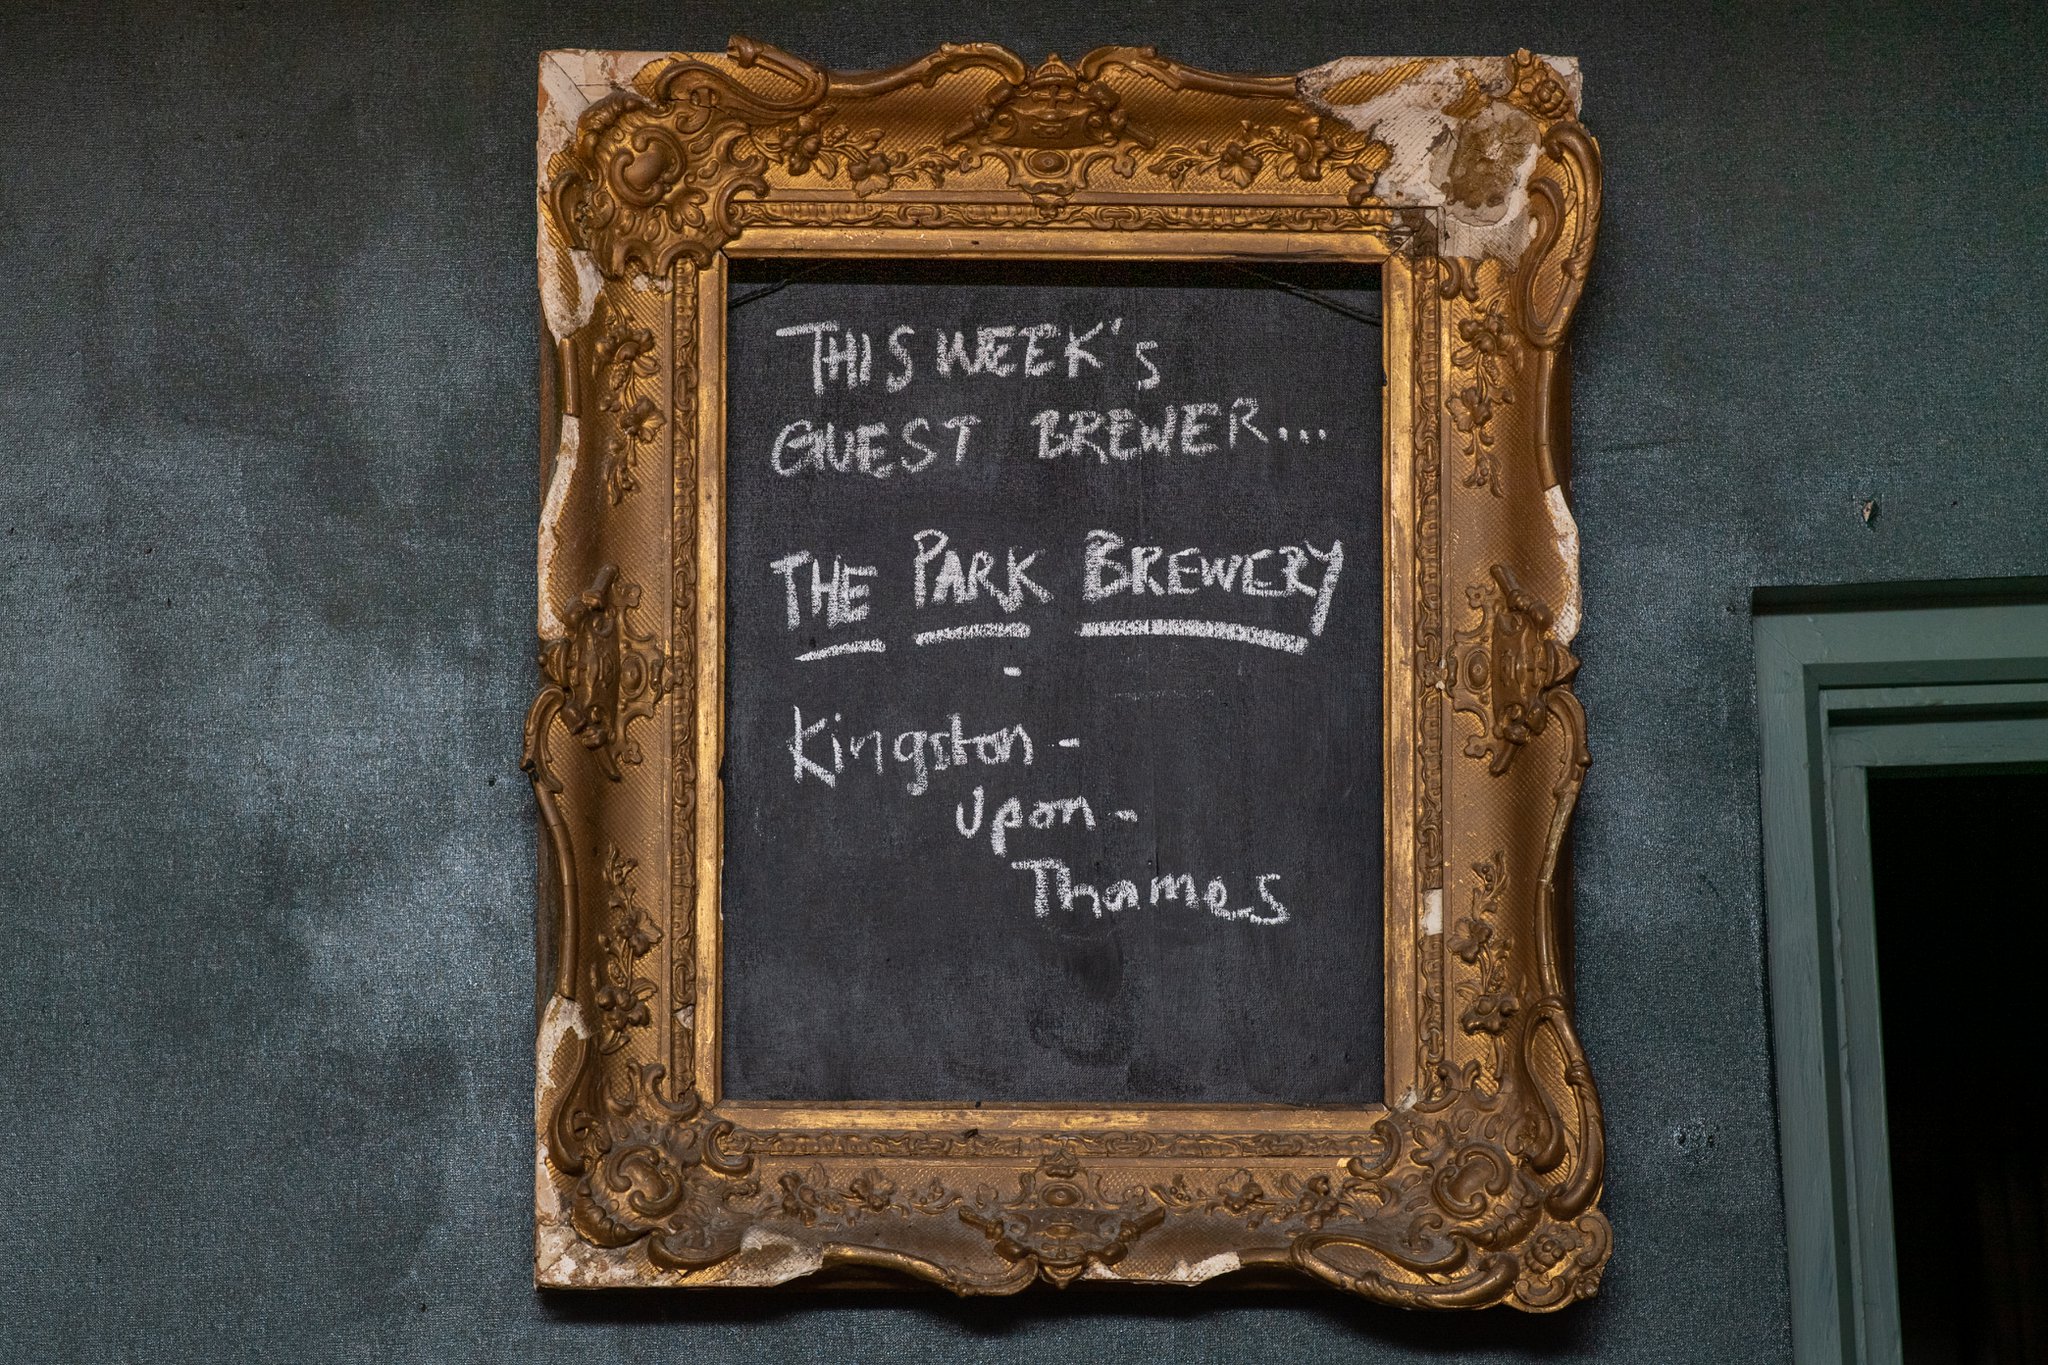 THIS WEEK'S
GUEST BREWER...
THE PARK BREWERY
-
Kingston-
Upon-
Thames